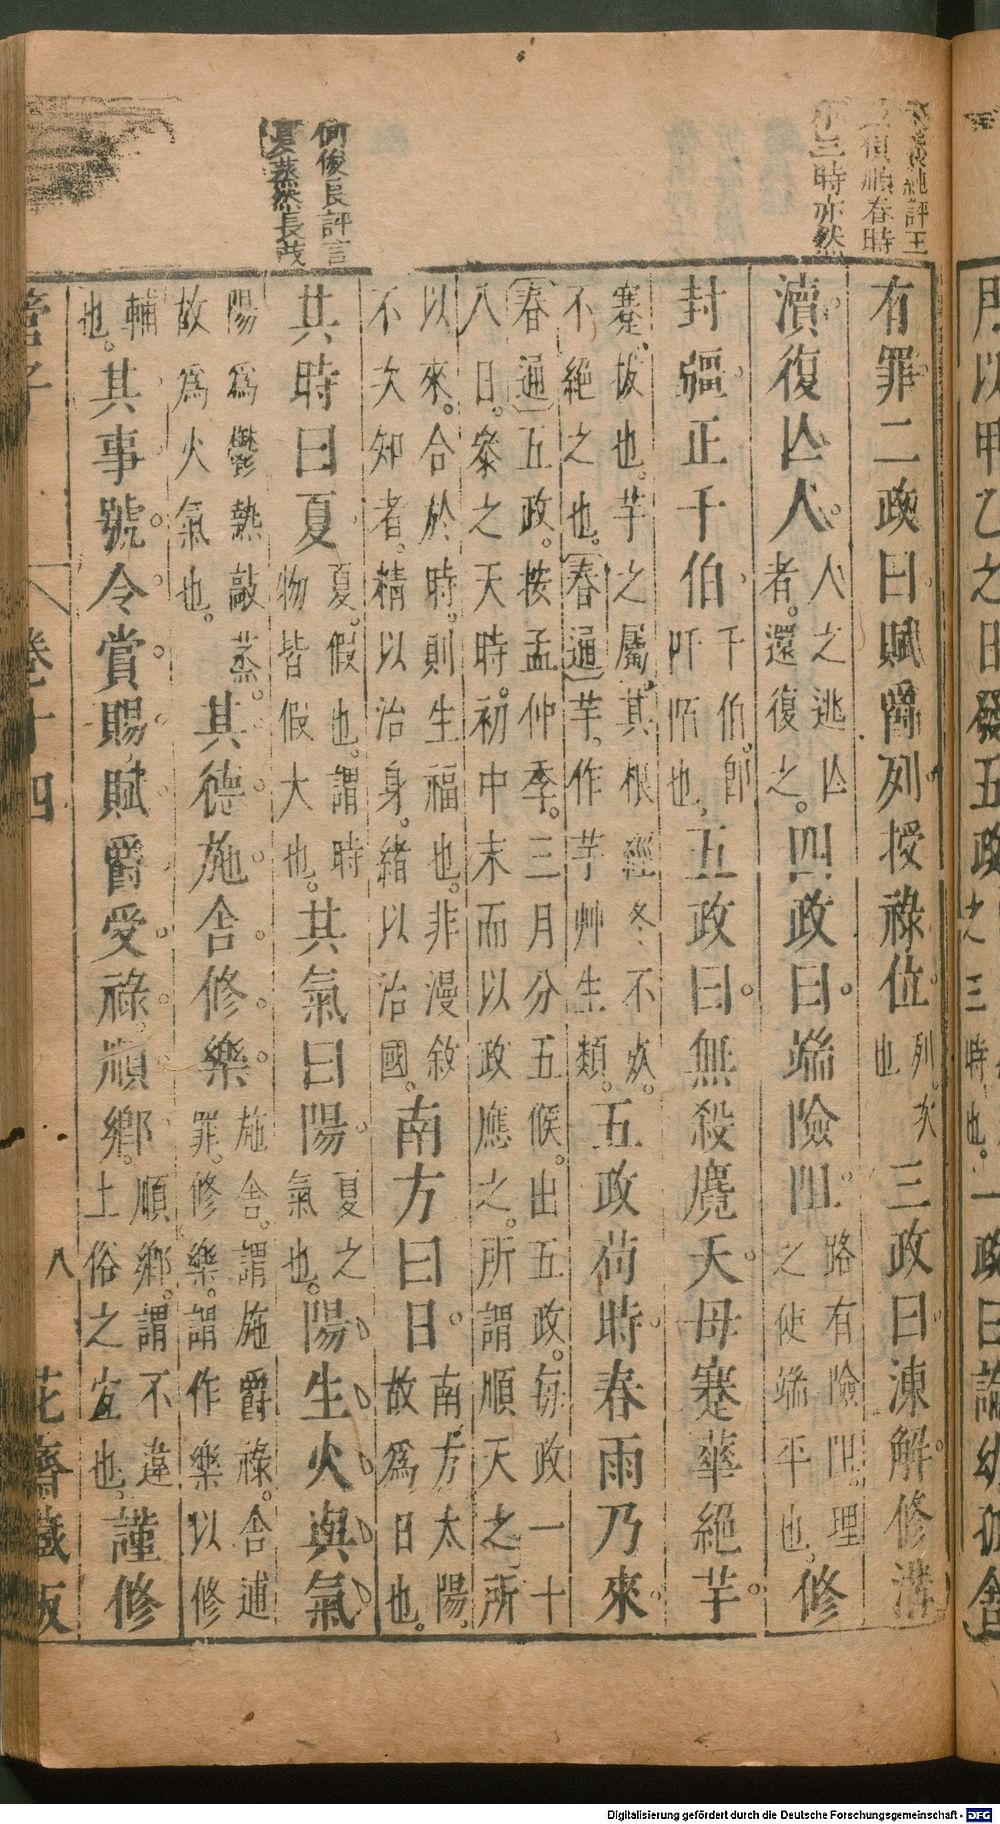 評王
順春時
三時亦然
有罪二政曰賦爵列授祿位列次也三政曰凍解修溝
瀆復亾人人之逃亾者還復之四政曰端險阻路有險阻理之使端平也修
封疆正千伯千伯即阡陌也五政曰無殺麑夭毋蹇華絕芋
蹇拔也芋之屬其根經冬不死不絕之也春通芋作芋艸生類五政苟時春雨乃來
春通五政按孟仲季三月分五候出五政每政一十八日叅之天時初中末而以政應之所謂順天之所
以來合於時則生福也非漫敘不次知者精以治身緒以治國南方曰日南方太陽故為日也
何俊良評言
夏蒸然長茂
其時曰夏夏假也謂時物皆假大也其氣曰陽夏之氣也陽生火與氣
陽為鬱熱歊蒸故為火氣也其德施舍修樂施舍謂施爵祿舍逋罪修樂謂作樂以修
輔也其事號令賞賜賦爵受祿順鄉順鄉謂不違土俗之宜也謹修
管子
卷十四
八
花齋藏板
月以甲乙之日發五政之三時也一政曰論幼孤舍
Digitalisierung gefördert durch die Deutsche Forschungsgemeinschaft - DFG